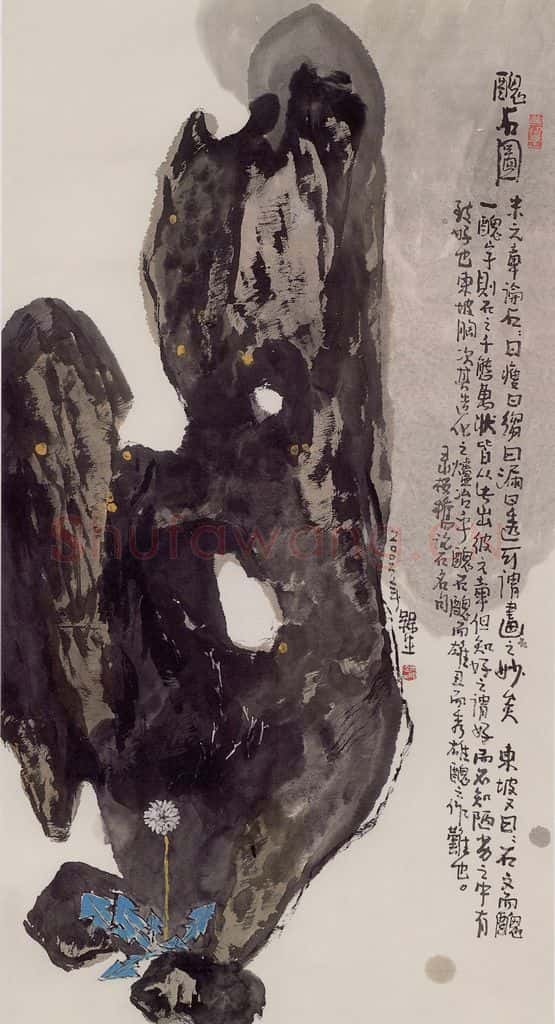 醜石圖
米元章論石：曰瘦曰縐曰漏曰透可謂畫石之妙矣 東坡又曰：石文而醜
一醜字則石之千態萬狀皆從此出彼元章但知好之謂好而不知陋劣之中有
致好也東坡胸次其造化之爐冶乎醜石醜而雄丑而秀雄醜之作難也。
录板橋石名句
Shufawang.cn